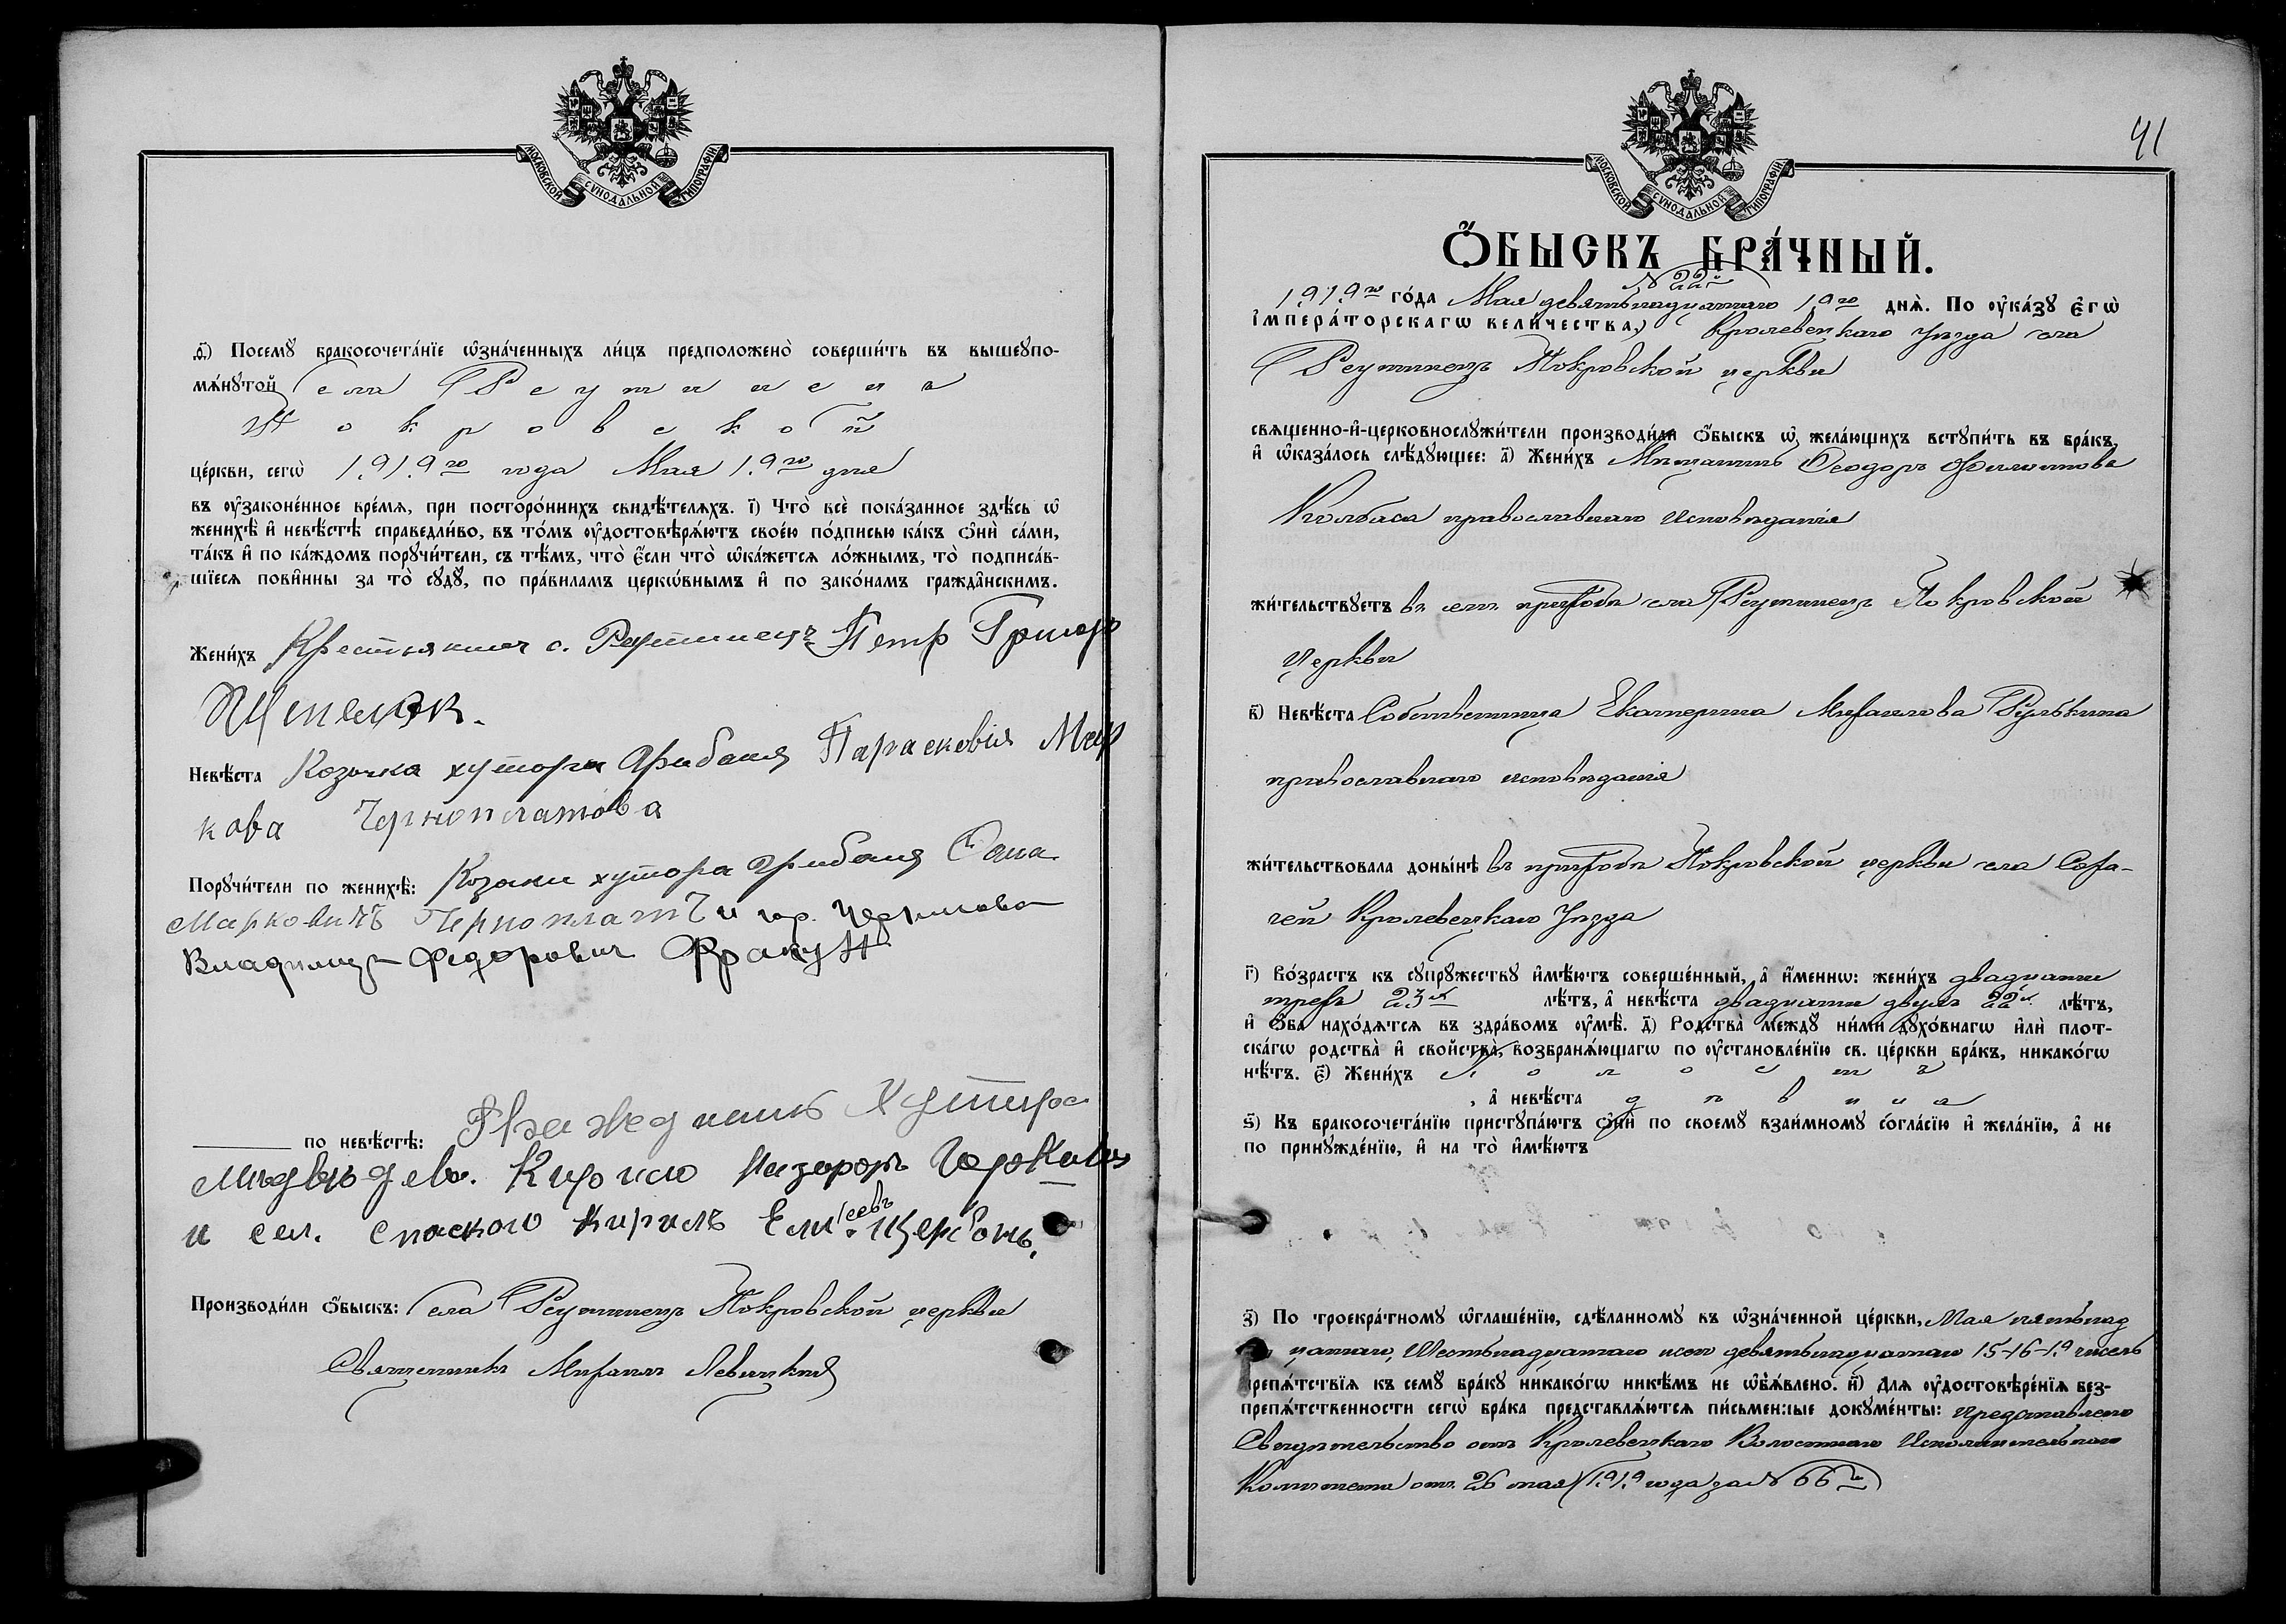 МОСКОВСКОЙ СѴНОДАЛЬНОЙ ТИПОГРАФІИ
ѳ҃) Посемꙋ бракосочета́нїе ѡ҆зна́ченныхъ ли́цъ предположено̀ соверши́ть въ вышеꙋпо-
мѧ́нꙋтой Села Реутинецъ
Покровской
це́ркви, сегѡ̀ 1919го года Мая 19го дня
въ ᲂу҆законе́нное вре́мѧ, при посторо́ннихъ свидѣ́телѧхъ. і҃) Что̀ всѐ пока́занное здѣ́сь ѡ҆
женихѣ̀ и҆ невѣ́стѣ справедли́во, въ то́мъ ᲂу҆достовѣрѧ́ютъ свое́ю по́дписью ка́къ ѻ҆нѝ са́ми,
та́къ и҆ по ка́ждомъ порꙋчи́тели, съ тѣ́мъ, что̀ є҆́сли что̀ ѡ҆ка́жетсѧ ло́жнымъ, то̀ подписа́в-
шїесѧ пови́нны за то̀ сꙋдꙋ̀, по пра́виламъ церкѡ́внымъ и҆ по зако́намъ гражда́нскимъ.
Жени́хъ Крестьянин с. Реутинецъ Петр Григор
Невѣ́ста Козачка хутора Грибаня Парасковія Мар
кова Черноплатова
Порꙋчи́тели по женихѣ̀: Козаки хутора Грибаня
Марковичъ и гр.
Владимир Федорович
по невѣ́стѣ: Гражданинъ Хутора
и сел. Спаского Кирилъ Елисеевъ Щербонь.
Производи́ли ѻ҆́быскъ: Села Реутинецъ Покровской церкви
Священникъ Михаилъ Левицкій
41
МОСКОВСКОЙ СѴНОДАЛЬНОЙ ТИПОГРАФІИ
Ѻ҆́БЫСКЪ БРА́ЧНЫЙ.
№ 22й
1919го го́да Мая девятьнадцатаго 19го днѧ̀. По ᲂу҆ка́зꙋ є҆гѡ̀
і҆мпера́торскагѡ вели́чества, Кролевецкаго Уѣзда села
Реутинецъ Покровской церкви
свѧщенно-и҆-церковнослꙋжи́тели производи́ли ѻ҆́быскъ ѡ҆ жела́ющихъ встꙋпи́ть въ бра́къ,
и҆ ѡ҆каза́лось слѣ́дꙋющее: а҃) Жени́хъ Мѣщанинъ Ѳеодоръ Филиппова
Колбаса православнаго исповѣданія
жи́тельствꙋетъ въ семъ приходѣ села Реутинецъ Покровской
церкви
в҃) Невѣ́ста Собственница Екатерина Михаилова Рулькина
православнаго исповѣданія
жи́тельствовала доны́нѣ въ приходѣ Покровской церкви села Соха-
чей Кролевецкаго Уѣзда
г҃) Во́зрастъ къ сꙋпрꙋ́жествꙋ и҆мѣ́ютъ соверше́нный, а҆ и҆́меннѡ: жени́хъ двадцати
трехъ 23х лѣ́тъ, а҆ невѣ́ста двадцати двухъ 22х лѣ́тъ,
и҆ ѻ҆́ба нахо́дѧтсѧ въ здра́вомъ ᲂу҆мѣ̀. д҃) Родства̀ междꙋ̀ ни́ми дꙋхо́внагѡ и҆лѝ плот-
ска́гѡ родства̀ и҆ свойства̀, возбранѧ́ющагѡ по ᲂу҆становле́нїю св. це́ркви бра́къ, никако́гѡ
нѣ́тъ. є҃) Жени́хъ холостъ
, а҆ невѣ́ста дѣвица
ѕ҃) Къ бракосочета́нїю пристꙋпа́ютъ ѻ҆нѝ по своемꙋ̀ взаи́мномꙋ согла́сїю и҆ жела́нїю, а҆ не
по принꙋжде́нїю, и҆ на то̀ и҆мѣ́ютъ
з҃) По троекра́тномꙋ ѡ҆глаше́нїю, сдѣ́ланномꙋ въ ѡ҆зна́ченной це́ркви, Мая пятьнад
цатаго, Шестьнадцатаго и девятьнадцатаго 15-16-19 чиселъ
препѧ́тствїѧ къ семꙋ̀ бра́кꙋ никако́гѡ никѣ́мъ не ѡ҆б̾ѧ́влено. и҃) Длѧ ᲂу҆достовѣре́нїѧ без-
препѧ́тственности сегѡ̀ бра́ка представлѧ́ютсѧ пи́сьменные докꙋме́нты: представлено
Свидѣтельство отъ Кролевецкаго Волостного Исполнительнаго
Комитета отъ 26 мая 1919 года за № 66м